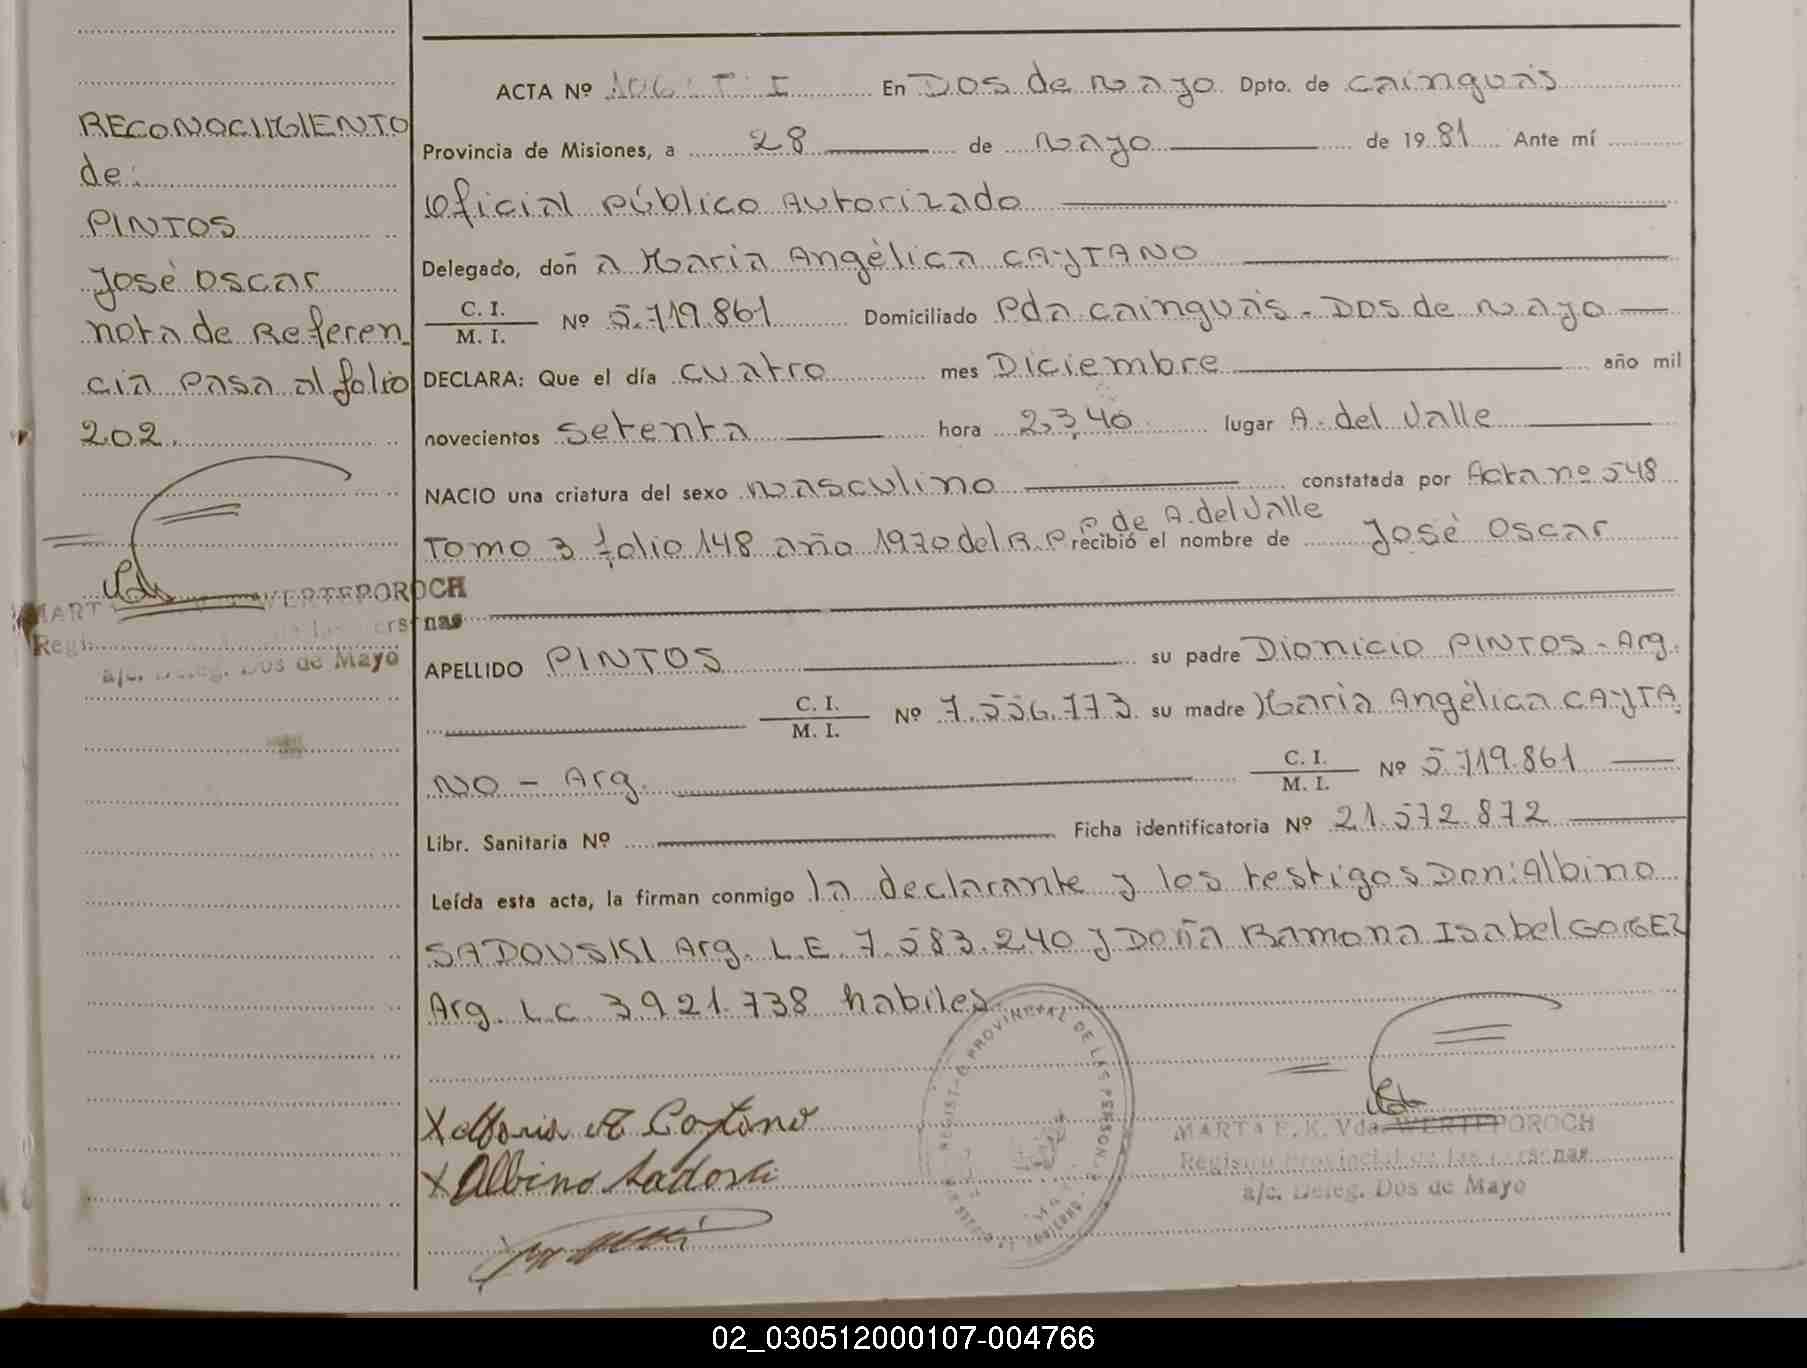 RECONOCIMIENTO
de:
PINTOS
José Oscar
nota de Referen_
cia Pasa al folio
202.
ACTA Nº 106 T I En Dos de Mayo Dpto. de Cainguás
Provincia de Misiones, a 28 de Mayo de 1981 Ante mí
Oficial Público Autorizado
Delegado, doñ a Maria Angélica CAYTANO
C. I.
M. I. Nº 5.719.861 Domiciliado Pda Cainguás - Dos de Mayo
DECLARA: Que el día cuatro mes Diciembre año mil
novecientos setenta hora 23,40 lugar A. del Valle
NACIO una criatura del sexo masculino constatada por Acta nº 548
Tomo 3 folio 148 año 1970 del R.P. P. de A. del Valle recibió el nombre de José Oscar
APELLIDO PINTOS su padre Dionicio PINTOS - Arg.
C. I.
M. I. Nº 7.556.773 su madre Maria Angélica CAYTA_
NO - Arg. C. I.
M. I. Nº 5.719.861
Libr. Sanitaria Nº Ficha identificatoria Nº 21.572.872
Leída esta acta, la firman conmigo la declarante y los testigos Don: Albino
SADOUSKI Arg. L.E. 7.583.240 y Doña Ramona Isabel GOMEZ
Arg. L.C. 3.921.738 habiles.
X Maria A Caytano
X Albino Sadoski
MARTA E. K. Vda. WERTEPOROCH
Registro Provincial de las Personas
a/c. Deleg. Dos de Mayo
MART WERTEPOROCH
Regi de las ersonas
a/c. Deleg. Dos de Mayo
REGISTRO PROVINCIAL DE LAS PERSONAS
02_030512000107-004766